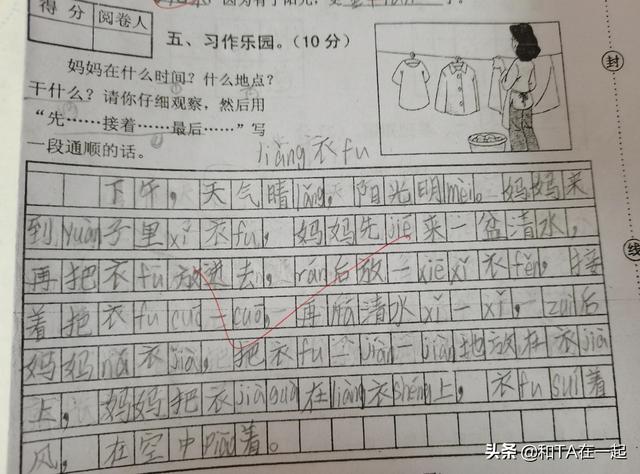 因为有了阳光，更
得分 阅卷人
五、习作乐园。(10分)
妈妈在什么时间？什么地点？
干什么？请你仔细观察，然后用
“先……接着……最后……”写
一段通顺的话。
liàng衣fu
下午，天气晴lǎng，阳光明mèi。妈妈来
到yuàn子里xǐ衣fu，妈妈先jiē来一盆清水，
再把衣fu放进去，rán后放一xiē xǐ衣fěn，接
着把衣fu cuō一cuō，再ná清水xǐ一xǐ，zuì后
妈妈ná衣jià，把衣fu一jiàn一jiàn地放在衣jià
上，妈妈把衣jià guà在liàng衣shéng上，衣fu suí着
风，在空中piāo着。
封
线
头条 @和TA在一起